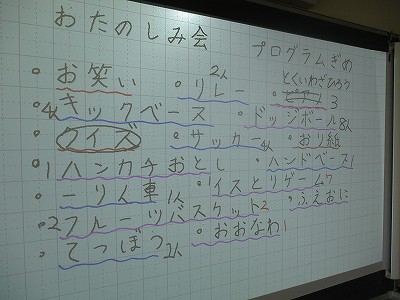 おたのしみ会
プログラムぎめ
・お笑い
4人キックベース
クイズ
1ハンカチおとし
・一りん車 1人
・2フルーツバスケット2
・てつぼう2人
2人
・リレー
・サッカー4人
・イスとりゲーム7
・おおなわ1
とくいわざひろう
3
・ドッジボール8人
・おり紙
・ハンドベース1
・ふえおに